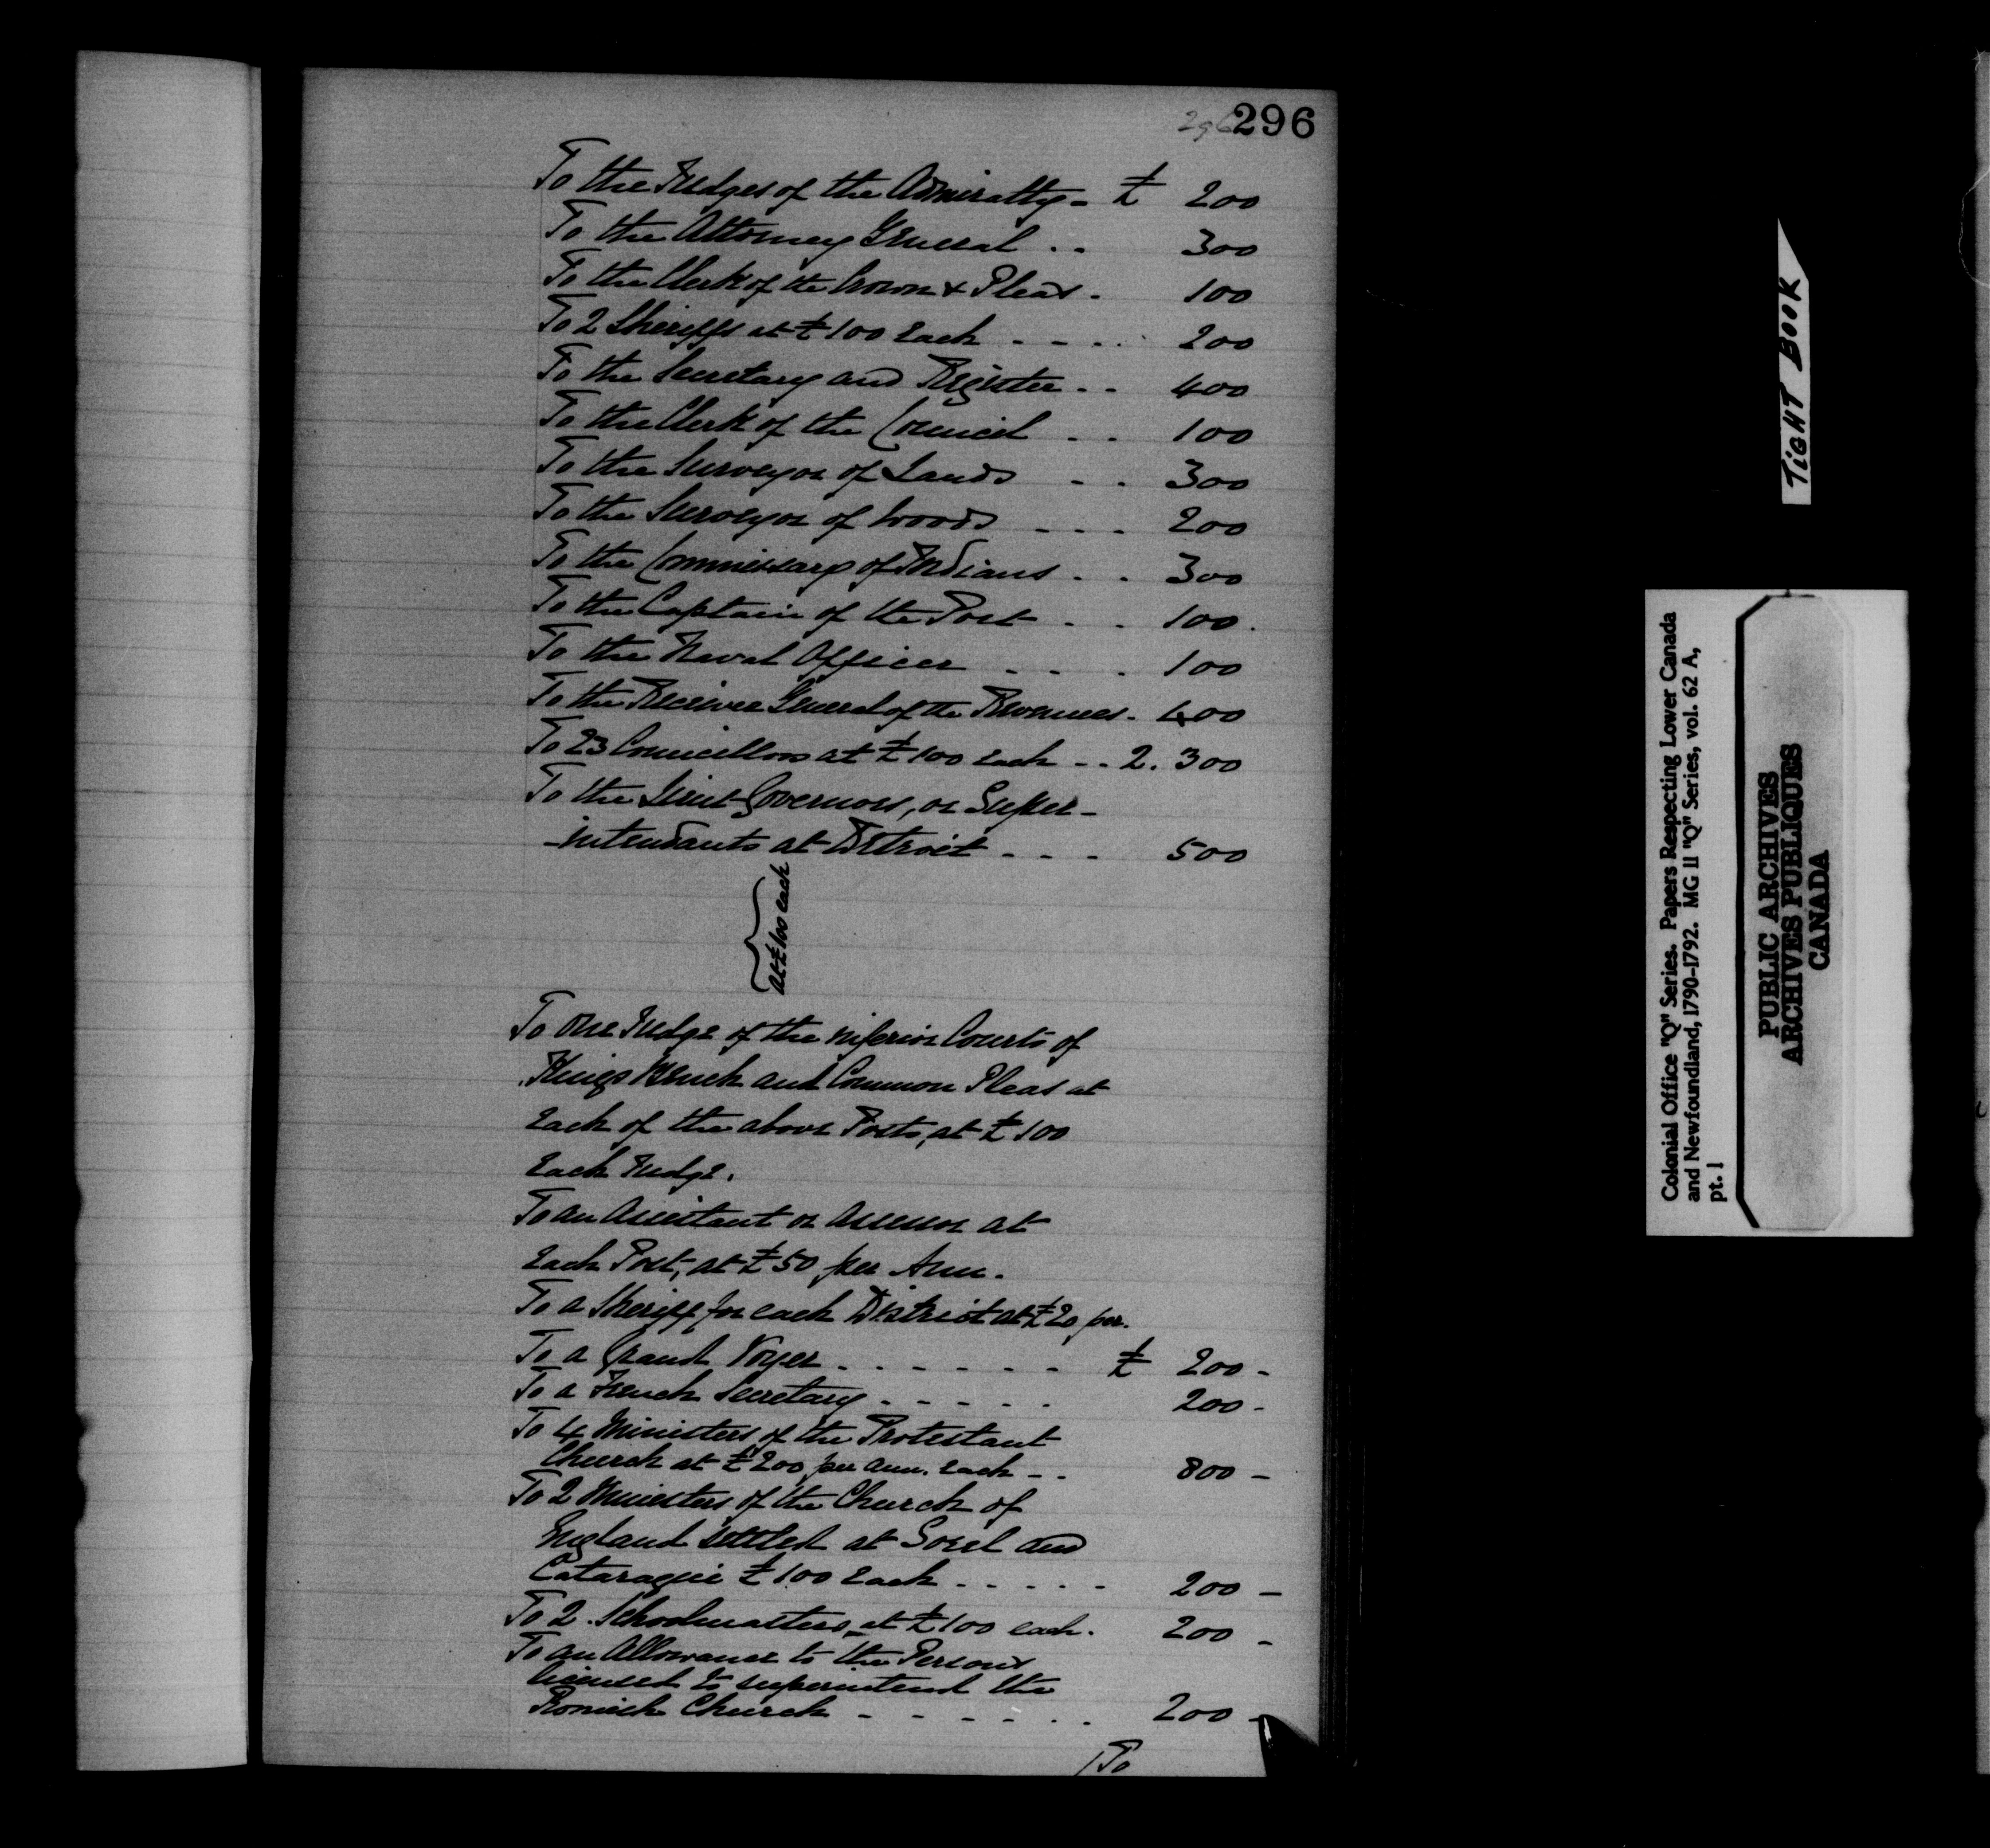 296 296
To the Judges of the Admiralty - £ 200
To the Attorney General . . 300
To the Clerk of the Crown & Pleas . 100
To 2 Sheriffs at £100 Each - - - . 200
To the Secretary and Register . . 400
To the Clerk of the Council . . 100
To the Surveyor of Lands - . 300
To the Surveyor of Woods - - - 200
To the Commissary of Indians . . 300
To the Captain of the Port . . 100.
To the Naval Officer . . . 100
To the Receiver General of the Revenues . 400
To 23 Councillors at £100 each - . 2.300
To the Lieut Governors, or Super-
-intendants at Detroit - - - 500
at £100 each
To One Judge of the inferior Courts of
Kings Bench and Common Pleas at
Each of the above Posts, at £100
Each Judge.
To an Assistant or Assessor at
Each Post, at £50 per Ann.
To a Sheriff for each District at £20 per.
To a Grand Voyer . . . . . . £ 200 -
To a French Secretary . . . . . 200 -
To 4 Ministers of the Protestant
Church at £200 per ann. Each - . 800 -
To 2 Ministers of the Church of
England settled at Sorel and
Cataraqui £100 Each . . . . . 200 -
To 2 Schoolmasters at £100 each . 200 -
To an Allowance to the Persons
licensed to superintend the
Romish Church - - - - . . 200 -
/To
TIGHT BOOK
Colonial Office "Q" Series. Papers Respecting Lower Canada
and Newfoundland, 1790-1792. MG 11 "Q" Series, vol. 62 A,
pt. 1
PUBLIC ARCHIVES
ARCHIVES PUBLIQUES
CANADA